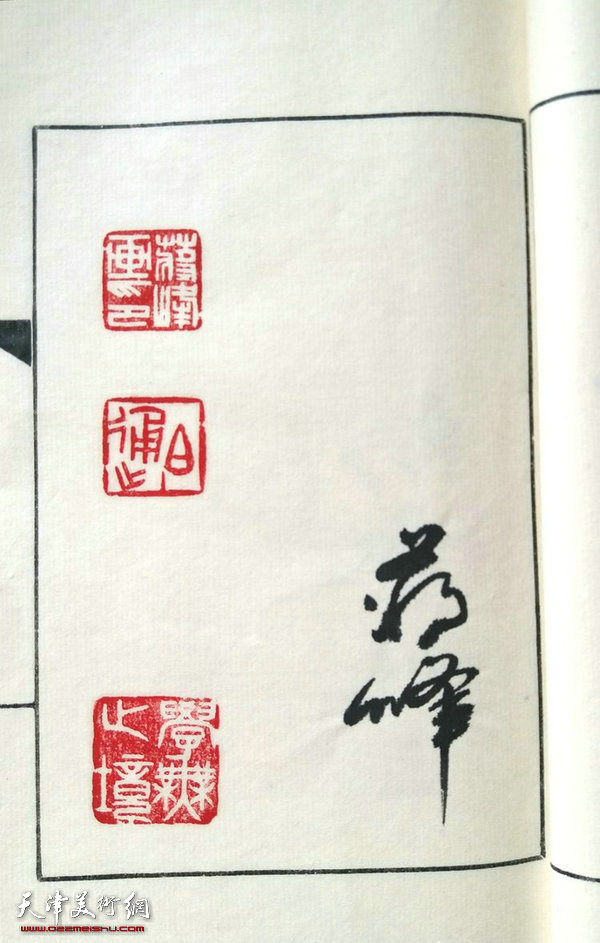 蔣峰
蔣峰畫印
學無止境
天津美術網
www.022meishu.com